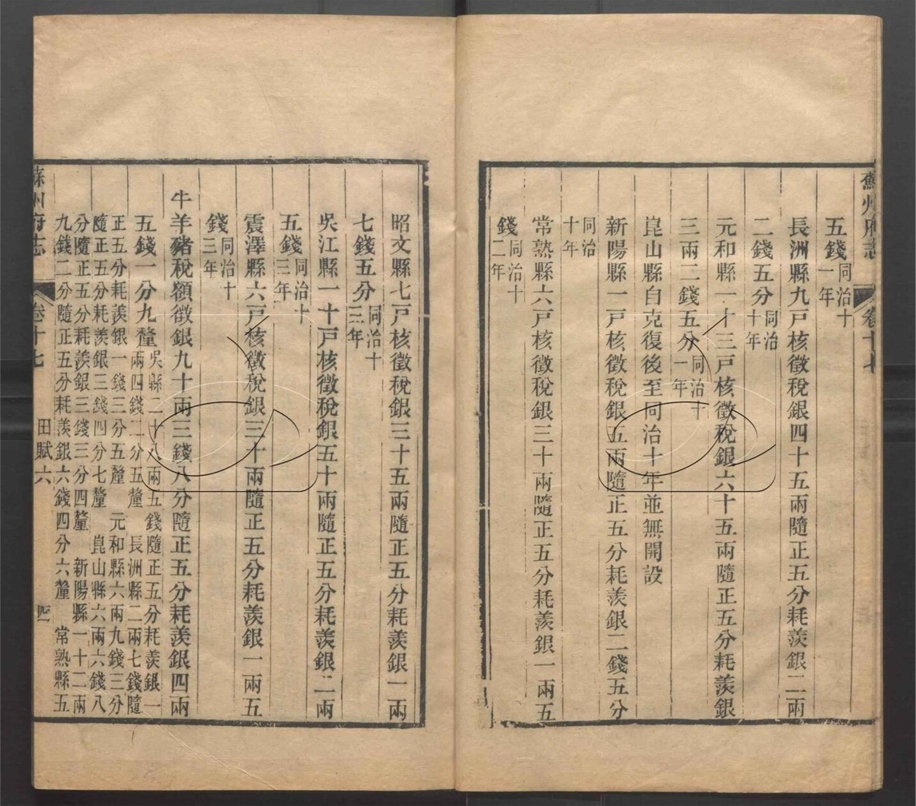 蘇州府志 卷十七
五錢同治十一年
長洲縣九戸核徵稅銀四十五兩隨正五分耗羨銀二兩
二錢五分同治十年
元和縣一十三戸核徵稅銀六十五兩隨正五分耗羨銀
三兩二錢五分同治十一年
崑山縣自克復後至同治十年並無開設
新陽縣一戸核徵稅銀五兩隨正五分耗羨銀二錢五分
同治十年
常熟縣六戸核徵稅銀三十兩隨正五分耗羨銀一兩五
錢同治十二年
昭文縣七戸核徵稅銀三十五兩隨正五分耗羨銀一兩
七錢五分同治十三年
吳江縣一十戸核徵稅銀五十兩隨正五分耗羨銀二兩
五錢同治十三年
震澤縣六戸核徵稅銀三十兩隨正五分耗羨銀一兩五
錢同治十三年
牛羊豬稅額徵銀九十兩三錢八分隨正五分耗羨銀四兩
五錢一分九釐吳縣二十八兩五錢隨正五分耗羨銀一
兩四錢二分五釐 長洲縣二兩七錢隨
正五分耗羨銀一錢三分五釐 元和縣六兩九錢三分
隨正五分耗羨銀三錢四分七釐 崑山縣六兩六錢八
分隨正五分耗羨銀三錢三分四釐 新陽縣一十二兩
九錢二分隨正五分耗羨銀六錢四分六釐 常熟縣五
蘇州府志 卷十七 田賦六